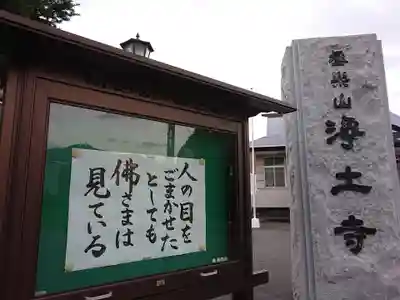 人の目を
ごまかせた
としても
佛さまは
見ている
極楽山
浄土寺